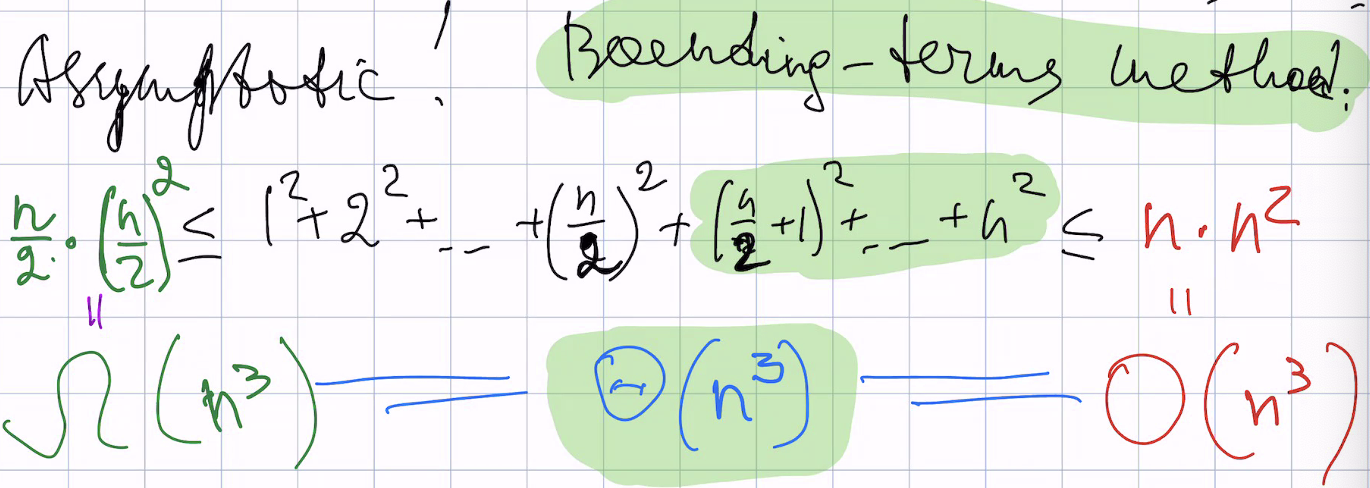 Assymptotic! Bounding-terms method!
n/2 · (n/2)² ≤ 1² + 2² + ... + (n/2)² + (n/2 + 1)² + ... + n² ≤ n · n²
|| ||
Ω(n³) = Θ(n³) = O(n³)